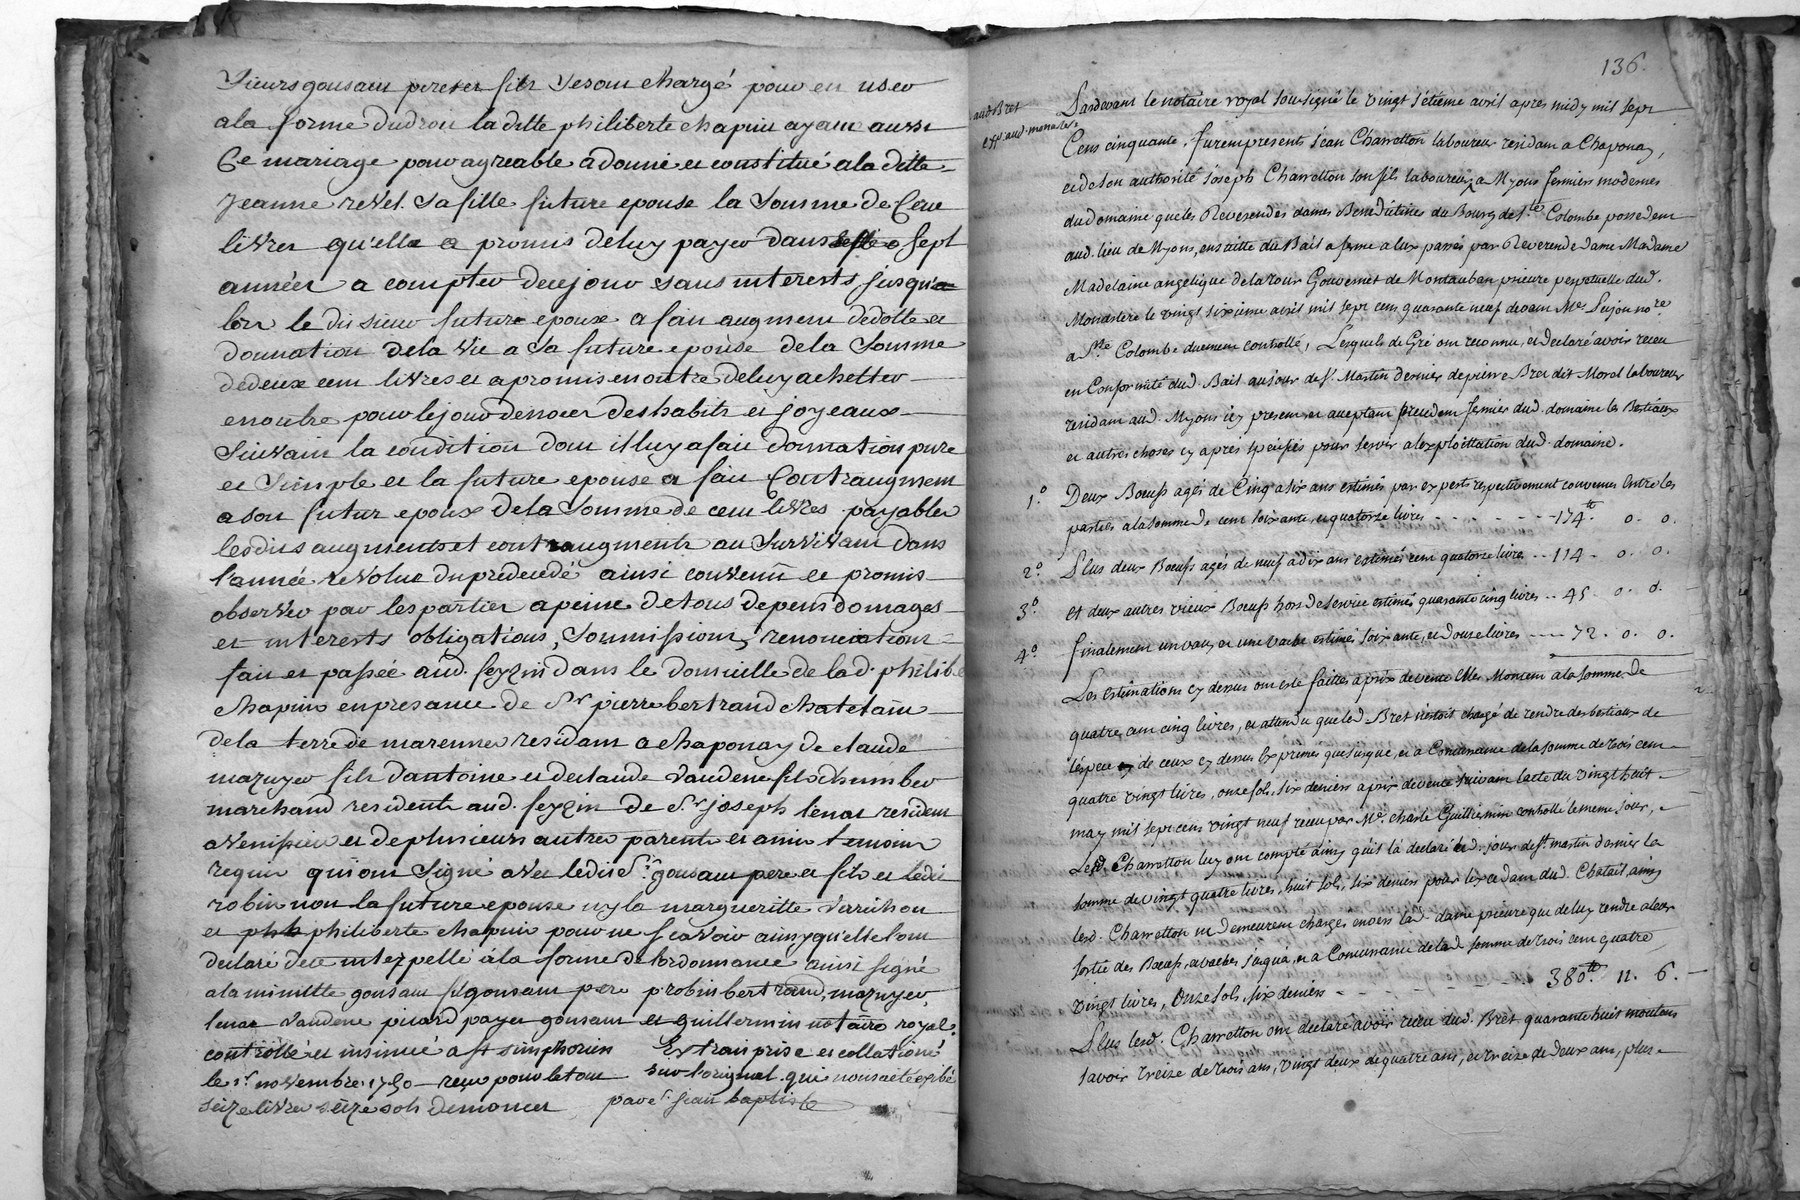 Sieurs gonsam pere et fils se sont chargé pour en user
a la forme du droit la ditte philiberte chapuis ayant aussi
Ce mariage pour agreable a donné et constitué a la ditte
jeanne revel sa fille future epouse la somme de Cent
livres qu'elle a promis de luy payer dans sept
années a compter de ce jour sans interests jusqu'a
lors le dit sieur futur epoux a fait augment de dotte et
donnation de la vie a sa future epouse de la somme
de deux cent livres et a promis en outre de luy achetter
en outre pour le jour de noces des habits et joyeaux
suivant la condition dont il luy a fait donnation pure
et simple et la future epouse a fait Contraugment
a son futur epoux de la somme de cent livres payables
lesdits augments et contraugments au survivant dans
l'année revolue du predecedé ainsi convenu et promis
observer par les parties a peine de tous depens domages
et interests obligations, soumissions, renonciations
fait et passée aud. feyzin dans le domicille de lad. philib
chapuis en presance de Sr pierre bertrand chatelain
de la terre de marennes residant a chaponay de claude
mazuyer fils d'antoine et de claude vandene fils d'humber
marchand residents aud. feyzin de Sr joseph lenat resident
a venissieu et de plusieurs autres parents et amis temoins
requis qui ont signé avec ledit Sr gonsam pere et fils et ledit
robin non la future epouse ny la margueritte
et philiberte chapuis pour ne scavoir ainsy qu'elles l'ont
declaré de ce interpellé a la forme de l'ordonnance ainsi signé
a la minitte gonsam fils gonsam pere p robin bertrand, mazuyer,
lenat vandene picard payet gonsam et guillermin notaire royal.
controllé et insinué a st simphorien Extrait prise et collationé
le 1r novembre 1750 reçu pour le tout sur l'original qui nous a été exibé
seize livres seize sols demoncet par Sr jean baptiste
136.
aud Bret
Pardevant le notaire royal sousigné le vingt setieme avril apres midy mil sept
Cens cinquante, furent presents jean Charretton laboureur residant a Chaponay,
et de son authorité joseph Charretton son fils laboureur a Myons fermiers modernes
du domaine que les Reverendes dames Benedictines du Bourg de Ste Colombe possedent
aud. lieu de Myons, ensuitte du Bail a ferme a eux passés par Reverende dame Madame
Madelaine angelique de la tour Gouvernet de Montauban prieure perpetuelle dud.
Monastere le vingt sixieme avril mil sept cent quarante neuf devant Me Dujou nore
a Ste Colombe duement controllé, Lesquels de Gré ont reconnu, et declaré avoir receu
en Conformité dud. Bail au jour de St Martin dernier de pierre Bret dit Morel laboureur
residant aud. Myons icy present et acceptant precedent fermier dud. domaine les Bestiaux
et autres choses cy aprés speciffiés pour servir a l'exploittation dud. domaine.
1.o Deux Boeufs agés de Cinq a six ans estimés par experts respectivement convenus Entre les
parties a la somme de cent soixante, et quatorze livres - - - 174.tt o. o.
2.o Plus deux Boeufs agés de neuf a dix ans estimés cent quatorze livres - - 114. o. o.
3.o et deux autres vieux Boeufs hors de service estimés quarante cinq livres - - 45. o. o.
4.o finalement un vaux et une vache estimés soixante, et douze livres - - 72. o. o.
Les estimations cy dessus ont esté faittes a prix de vente Elles Montent a la somme de
quatre cent cinq livres, et attendu que led. Bret n'estoit chargé de rendre des bestiaux de
l'espece de ceux cy dessus Exprimés que jusque, et a Concurrance de la somme de trois cent
quatre vingt livres, onze sols, six deniers a prix de vente suivant l'acte du vingt huit
may mil sept cens vingt neuf receu par Me. charle Guillermin controllé le meme jour,
Lesd. Charretton luy ont compté ainsy qu'il l'a declaré led. jour de St martin dernier la
somme de vingt quatre livres, huit sols, six deniers pour l'excedant dud. Chatail, ainsy
lesd. Charretton n'en demeurent chargés envers lad. dame prieure que de luy rendre a leur
sortie des Boeufs, et vaches jusqu'a, et a Concurrance de lad. somme de trois cent quatre
vingt livres, onze sols, six deniers - - - - - - 380.tt 11. 6.
Plus lesd. Charretton ont declaré avoir receu dud. Bret quarante huit moutons
savoir treize de trois ans, vingt deux de quatre ans, et treize de deux ans, plus